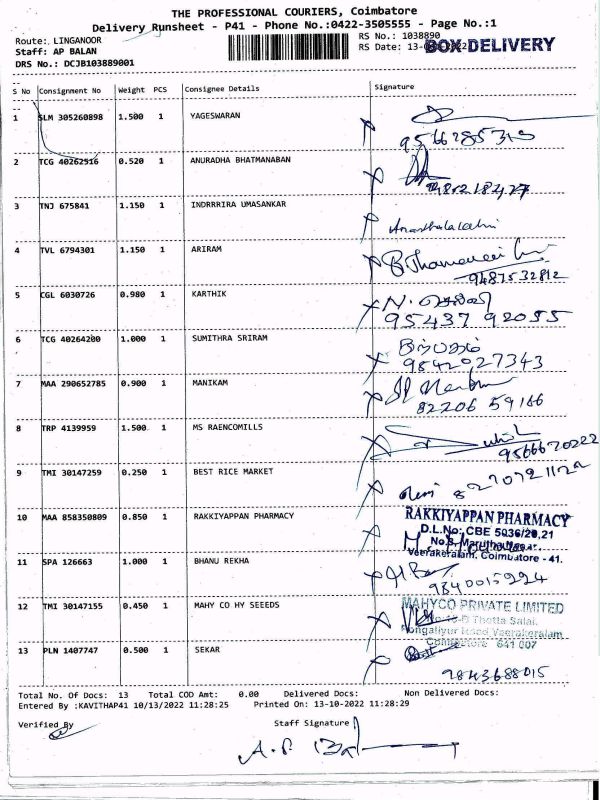 THE PROFESSIONAL COURIERS, Coimbatore
Delivery Runsheet - P41 - Phone No.:0422-3505555 - Page No.:1
Route: LINGANOOR RS No.: 1038890
Staff: AP BALAN RS Date: 13- 2022 BOX DELIVERY
DRS No.: DCJB103889001
S No Consignment No Weight PCS Consignee Details Signature
1 SLM 305260898 1.500 1 YAGESWARAN
9566285313
2 TCG 40262516 0.520 1 ANURADHA BHATMANABAN
3 TNJ 675841 1.150 1 INDRRRIRA UMASANKAR
4 TVL 6794301 1.150 1 ARIRAM
9487532812
5 CGL 6030726 0.980 1 KARTHIK
N. செல்வி
95437 92055
6 TCG 40264200 1.000 1 SUMITHRA SRIRAM
9842027343
7 MAA 290652785 0.900 1 MANIKAM
82206 59166
8 TRP 4139959 1.500 1 MS RAENCOMILLS
9566670222
9 TMI 30147259 0.250 1 BEST RICE MARKET
10 MAA 858350809 0.850 1 RAKKIYAPPAN PHARMACY
RAKKIYAPPAN PHARMACY
D.L.No: CBE 5036/20,21
No.8, Marutha Nagar,
Veerakeralam, Coimbatore - 41.
11 SPA 126663 1.000 1 BHANU REKHA
9840015224
12 TMI 30147155 0.450 1 MAHY CO HY SEEEDS
MAHYCO PRIVATE LIMITED
Thotta Salai,
Pongaliyur Road, Veerakeralam,
Coimbatore 641 007
13 PLN 1407747 0.500 1 SEKAR
9843688015
Total No. Of Docs: 13 Total COD Amt: 0.00 Delivered Docs: Non Delivered Docs:
Entered By :KAVITHAP41 10/13/2022 11:28:25 Printed On: 13-10-2022 11:28:29
Verified By Staff Signature